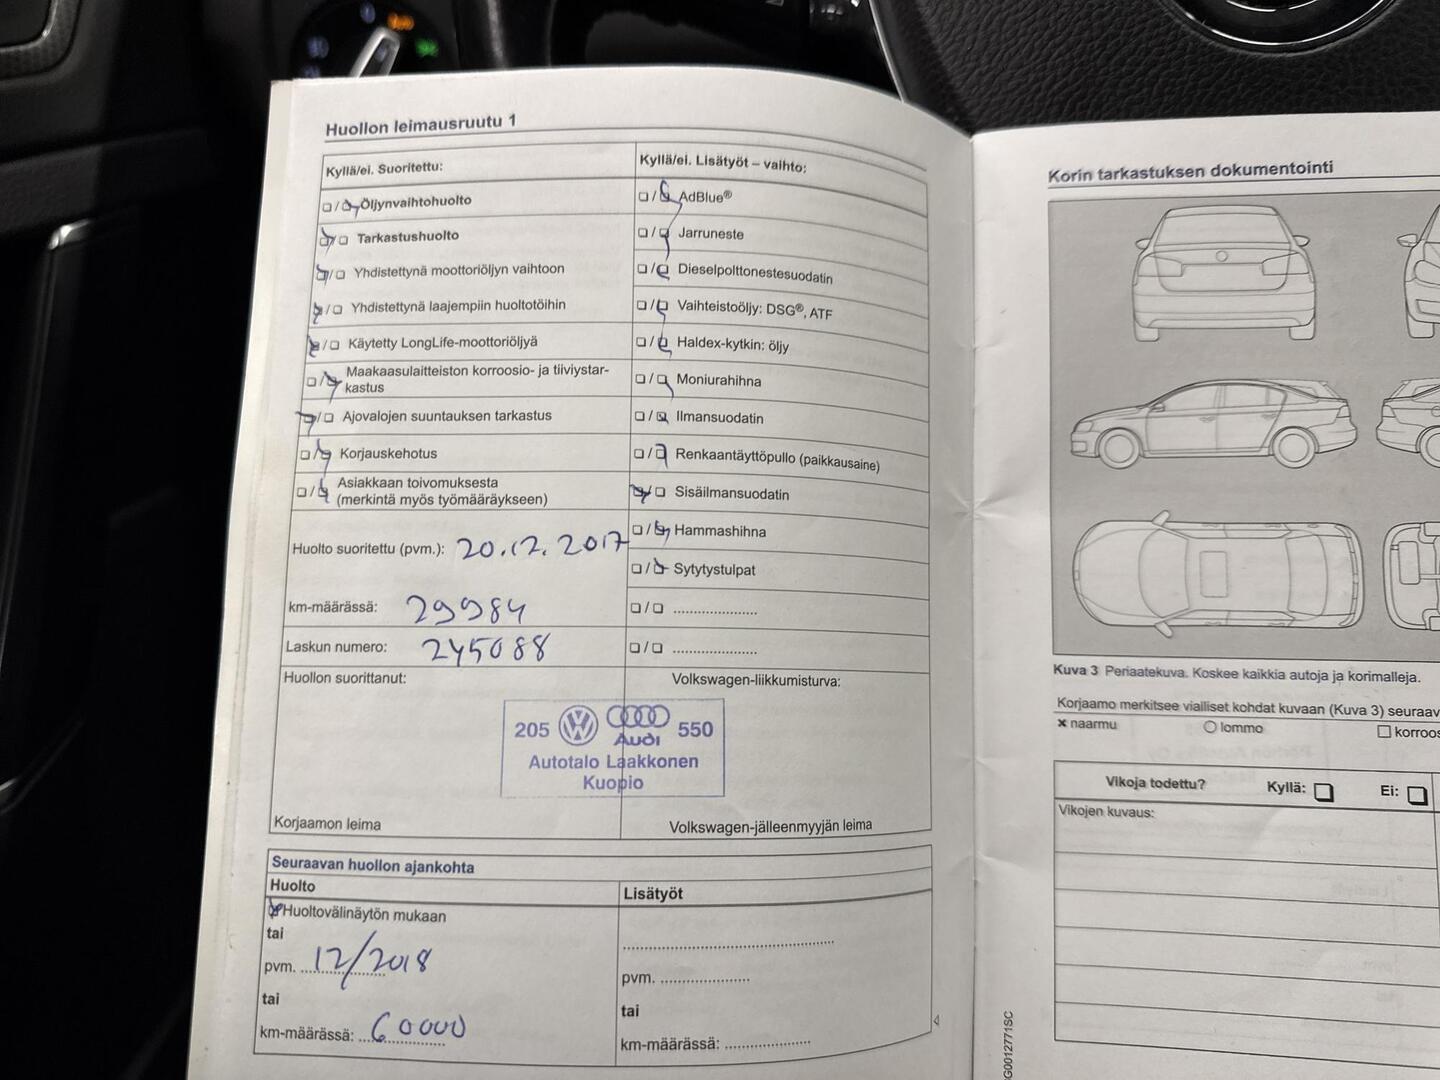 Huollon leimausruutu 1
Kyllä/ei. Suoritettu:
Öljynvaihtohuolto
Tarkastushuolto
Yhdistettynä moottoriöljyn vaihtoon
Yhdistettynä laajempiin huoltotöihin
Käytetty LongLife-moottoriöljyä
Maakaasulaitteiston korroosio- ja tiiviystar-
kastus
Ajovalojen suuntauksen tarkastus
Korjauskehotus
Asiakkaan toivomuksesta
(merkintä myös työmääräykseen)
Huolto suoritettu (pvm.): 20.12.2017
km-määrässä: 29984
Laskun numero: 245088
Huollon suorittanut:
Kyllä/ei. Lisätyöt – vaihto:
AdBlue®
Jarruneste
Dieselpolttonestesuodatin
Vaihteistoöljy: DSG®, ATF
Haldex-kytkin: öljy
Moniurahihna
Ilmansuodatin
Renkaantäyttöpullo (paikkausaine)
Sisäilmansuodatin
Hammashihna
Sytytystulpat
Volkswagen-liikkumisturva:
205 VW Audi 550
Autotalo Laakkonen
Kuopio
Korjaamon leima
Volkswagen-jälleenmyyjän leima
Seuraavan huollon ajankohta
Huolto
Huoltovälinäytön mukaan
tai
pvm. 12/2018
tai
km-määrässä: 60000
Lisätyöt
pvm.
tai
km-määrässä:
Korin tarkastuksen dokumentointi
Kuva 3 Periaatekuva. Koskee kaikkia autoja ja korimalleja.
Korjaamo merkitsee vialliset kohdat kuvaan (Kuva 3) seuraav
× naarmu lommo korroos
Vikoja todettu? Kyllä: Ei:
Vikojen kuvaus:
G0012771SC